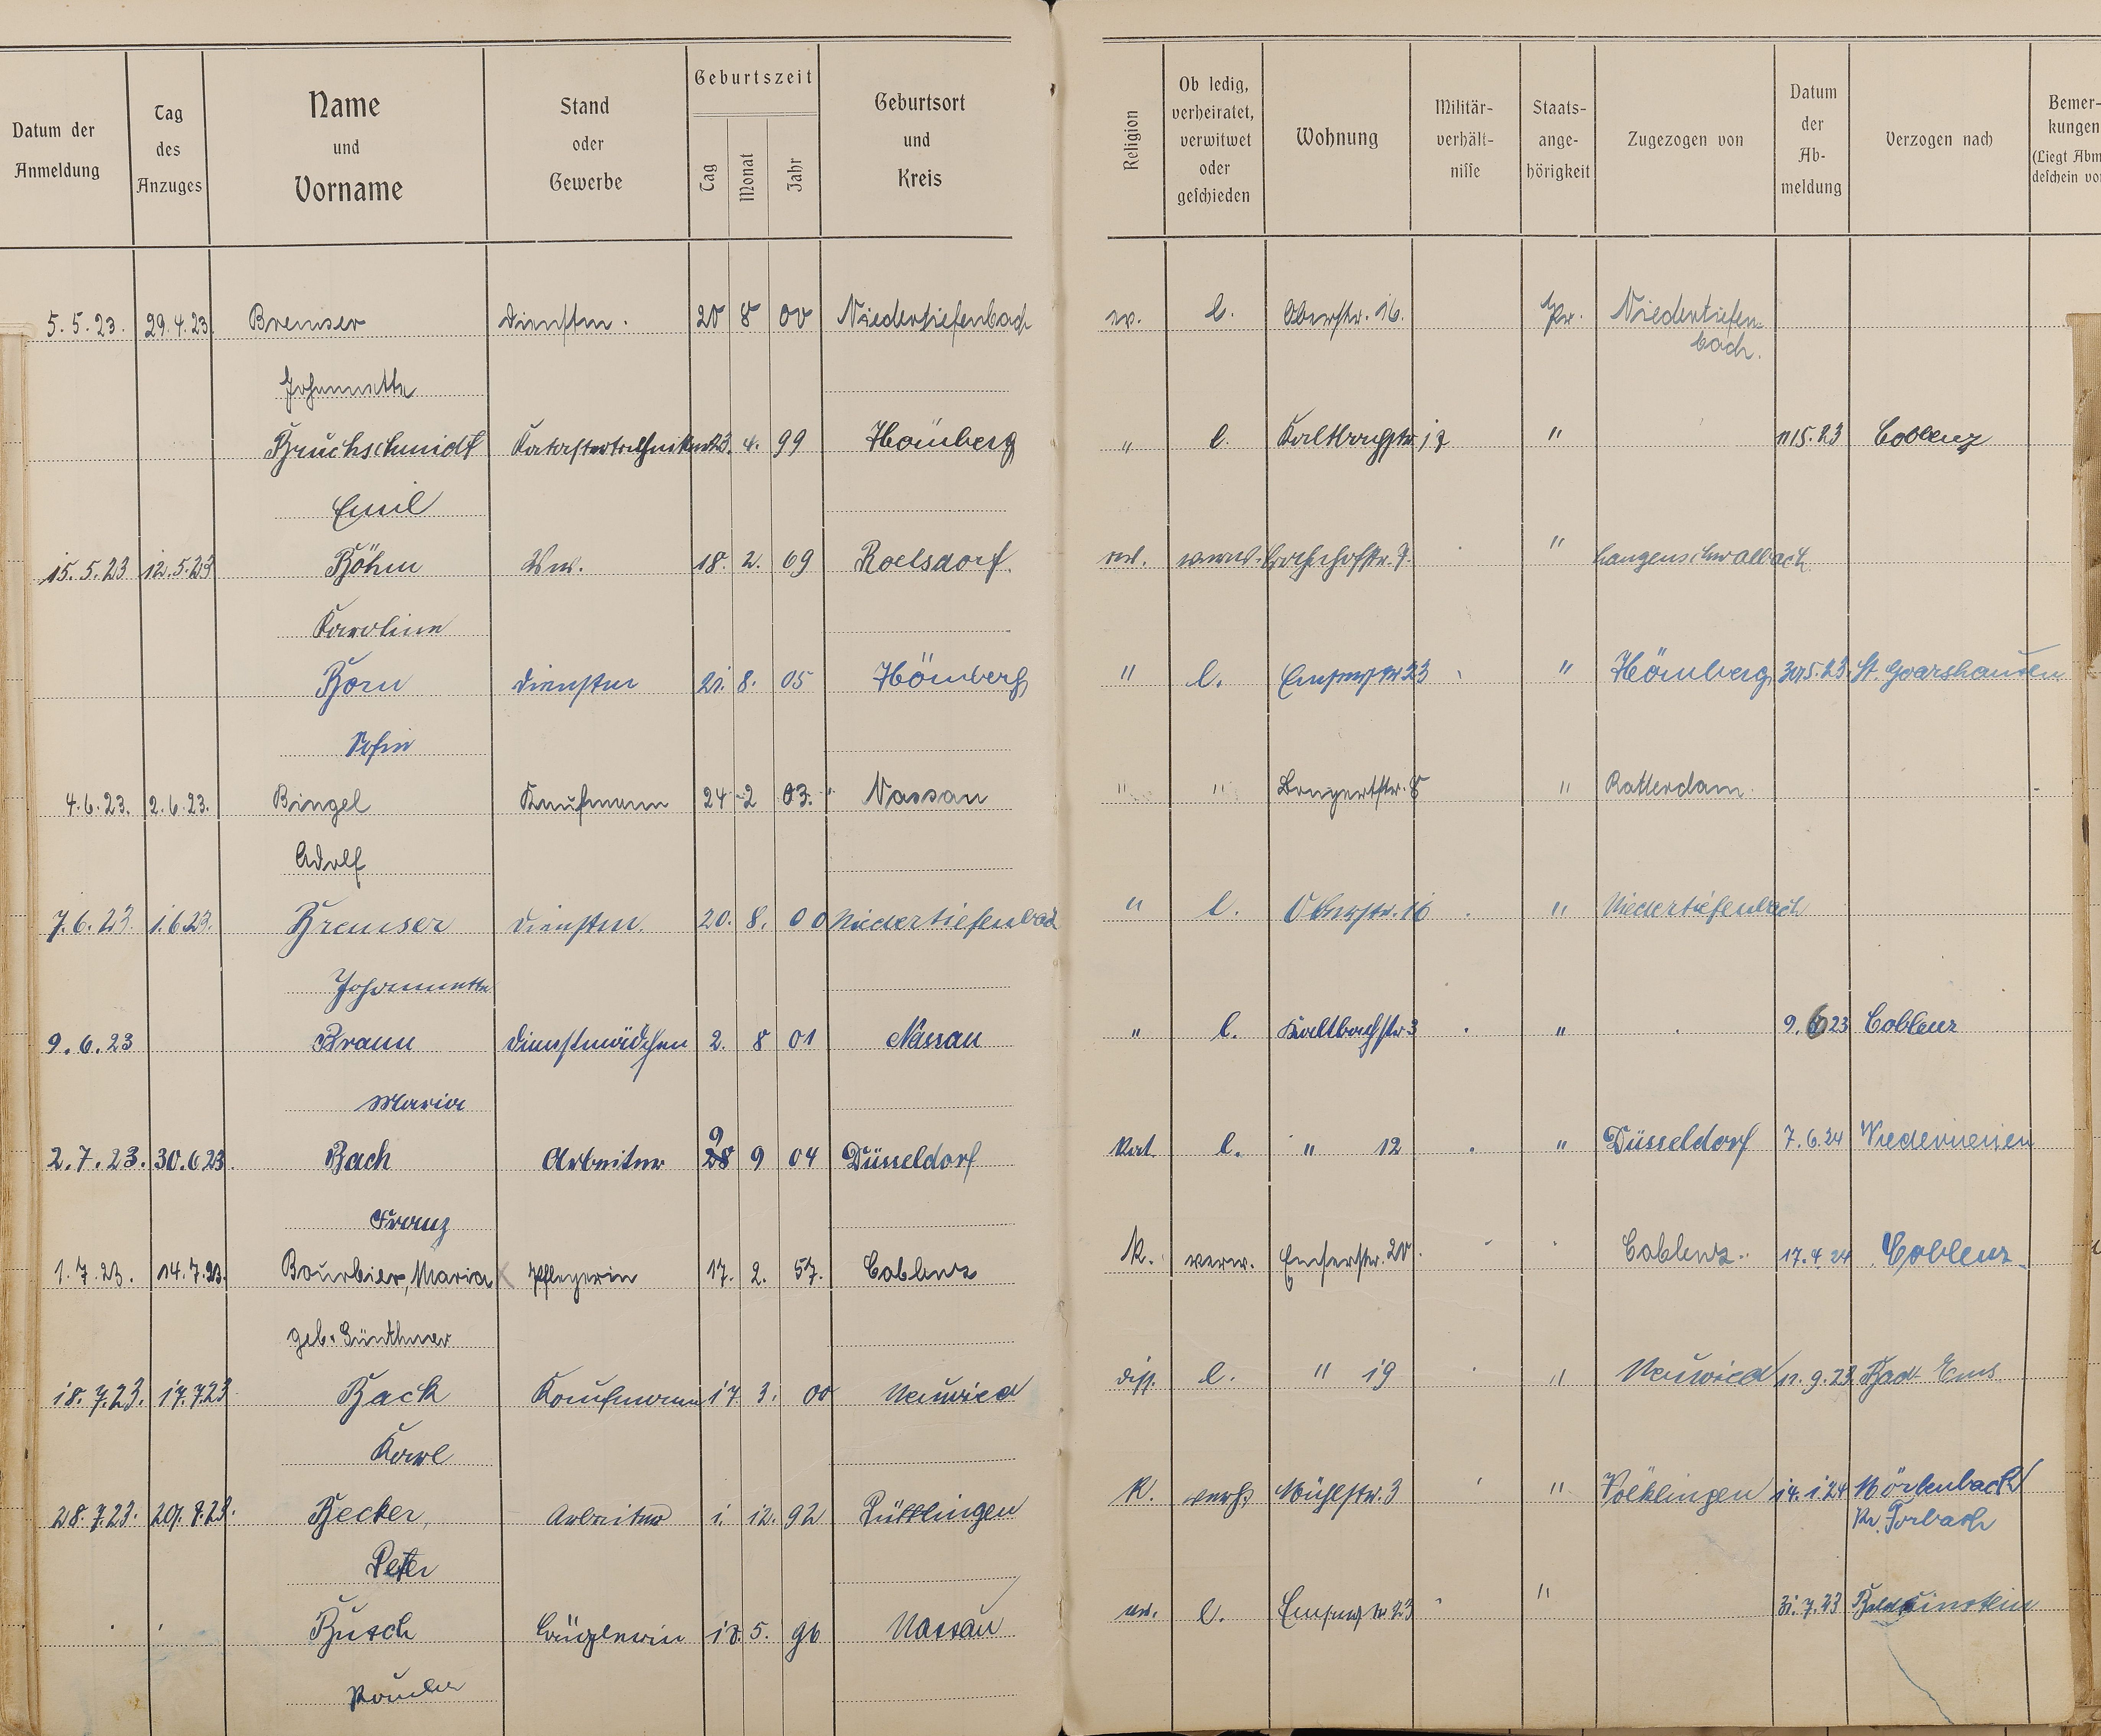 Datum der Anmeldung | Tag des Anzuges | Name und Vorname | Stand oder Gewerbe | Geburtszeit | Tag | Monat | Jahr | Geburtsort und Kreis | Religion | Ob ledig, verheiratet, verwitwet oder geschieden | Wohnung | Militär-verhält-nisse | Staats-ange-hörigkeit | Zugezogen von | Datum der Ab-meldung | Verzogen nach | Bemer-kungen (Liegt Abm deschein vo
5.5.23. 29.4.23. Bremser Dienstm. 20 8 00 Niedertiefenbach ev. l. Oberstr. 16. Pr. Niedertiefen-
bach.
Johannette
Bruchschmidt Katastertechniker 23. 4. 99 Hömberg " l. Kaltbachstr. " 11 5.23 Coblenz
Emil
15.5.23 12.5.23 Böhm Ww. 18. 2. 69 Roelsdorf. ev. verw. Bachhofstr. 7. " Langenschwalbach
Karoline
Born Dienstm 21. 8. 05 Hömberg " l. Emserstr 23 " Hömberg 30 5.23. St. Goarshausen
Sofie
4.6.23. 2.6.23. Bingel Kaufmann 24 2 03. Nassau " " Bongertstr. 8 " Rotterdam.
Adolf
7.6.23 1.6.23. Bremser Dienstm. 20. 8. 00 Niedertiefenbach " l. Oberstr. 16 " Niedertiefenbach
Johannette
9.6.23 Braun Dienstmädchen 2. 8 01 Nassau " l. Kaltbachstr 3 " 9.6 23 Coblenz
Maria
2.7.23. 30.6.23. Bach Arbeiter 9 04 Düsseldorf Kat. l. " 12 " Düsseldorf 7.6.24 Niederneisen
Franz
1.7.23. 14.7.23. Bourbier, Maria Pflegerin 17. 2. 57. Coblenz K. verw. Emserstr. 20. Coblenz. 17.4.24 Coblenz.
geb. Günthner
18.7.23. 17.7.23 Back Kaufmann 17 3. 00 Neuwied diss. l. " 19 " Neuwied 11.9.23 Bad Ems
Karl
28.7.23. Becker, Arbeiter 1. 12. 92 Püttlingen K. verh. Mühlstr. 3 " Völklingen 14.1.24
Kr. Forbach
Peter
Busch Büglerin 5. 96 Nassau ev. l. Emserstr 23 " 31.7.23 Balduinstein